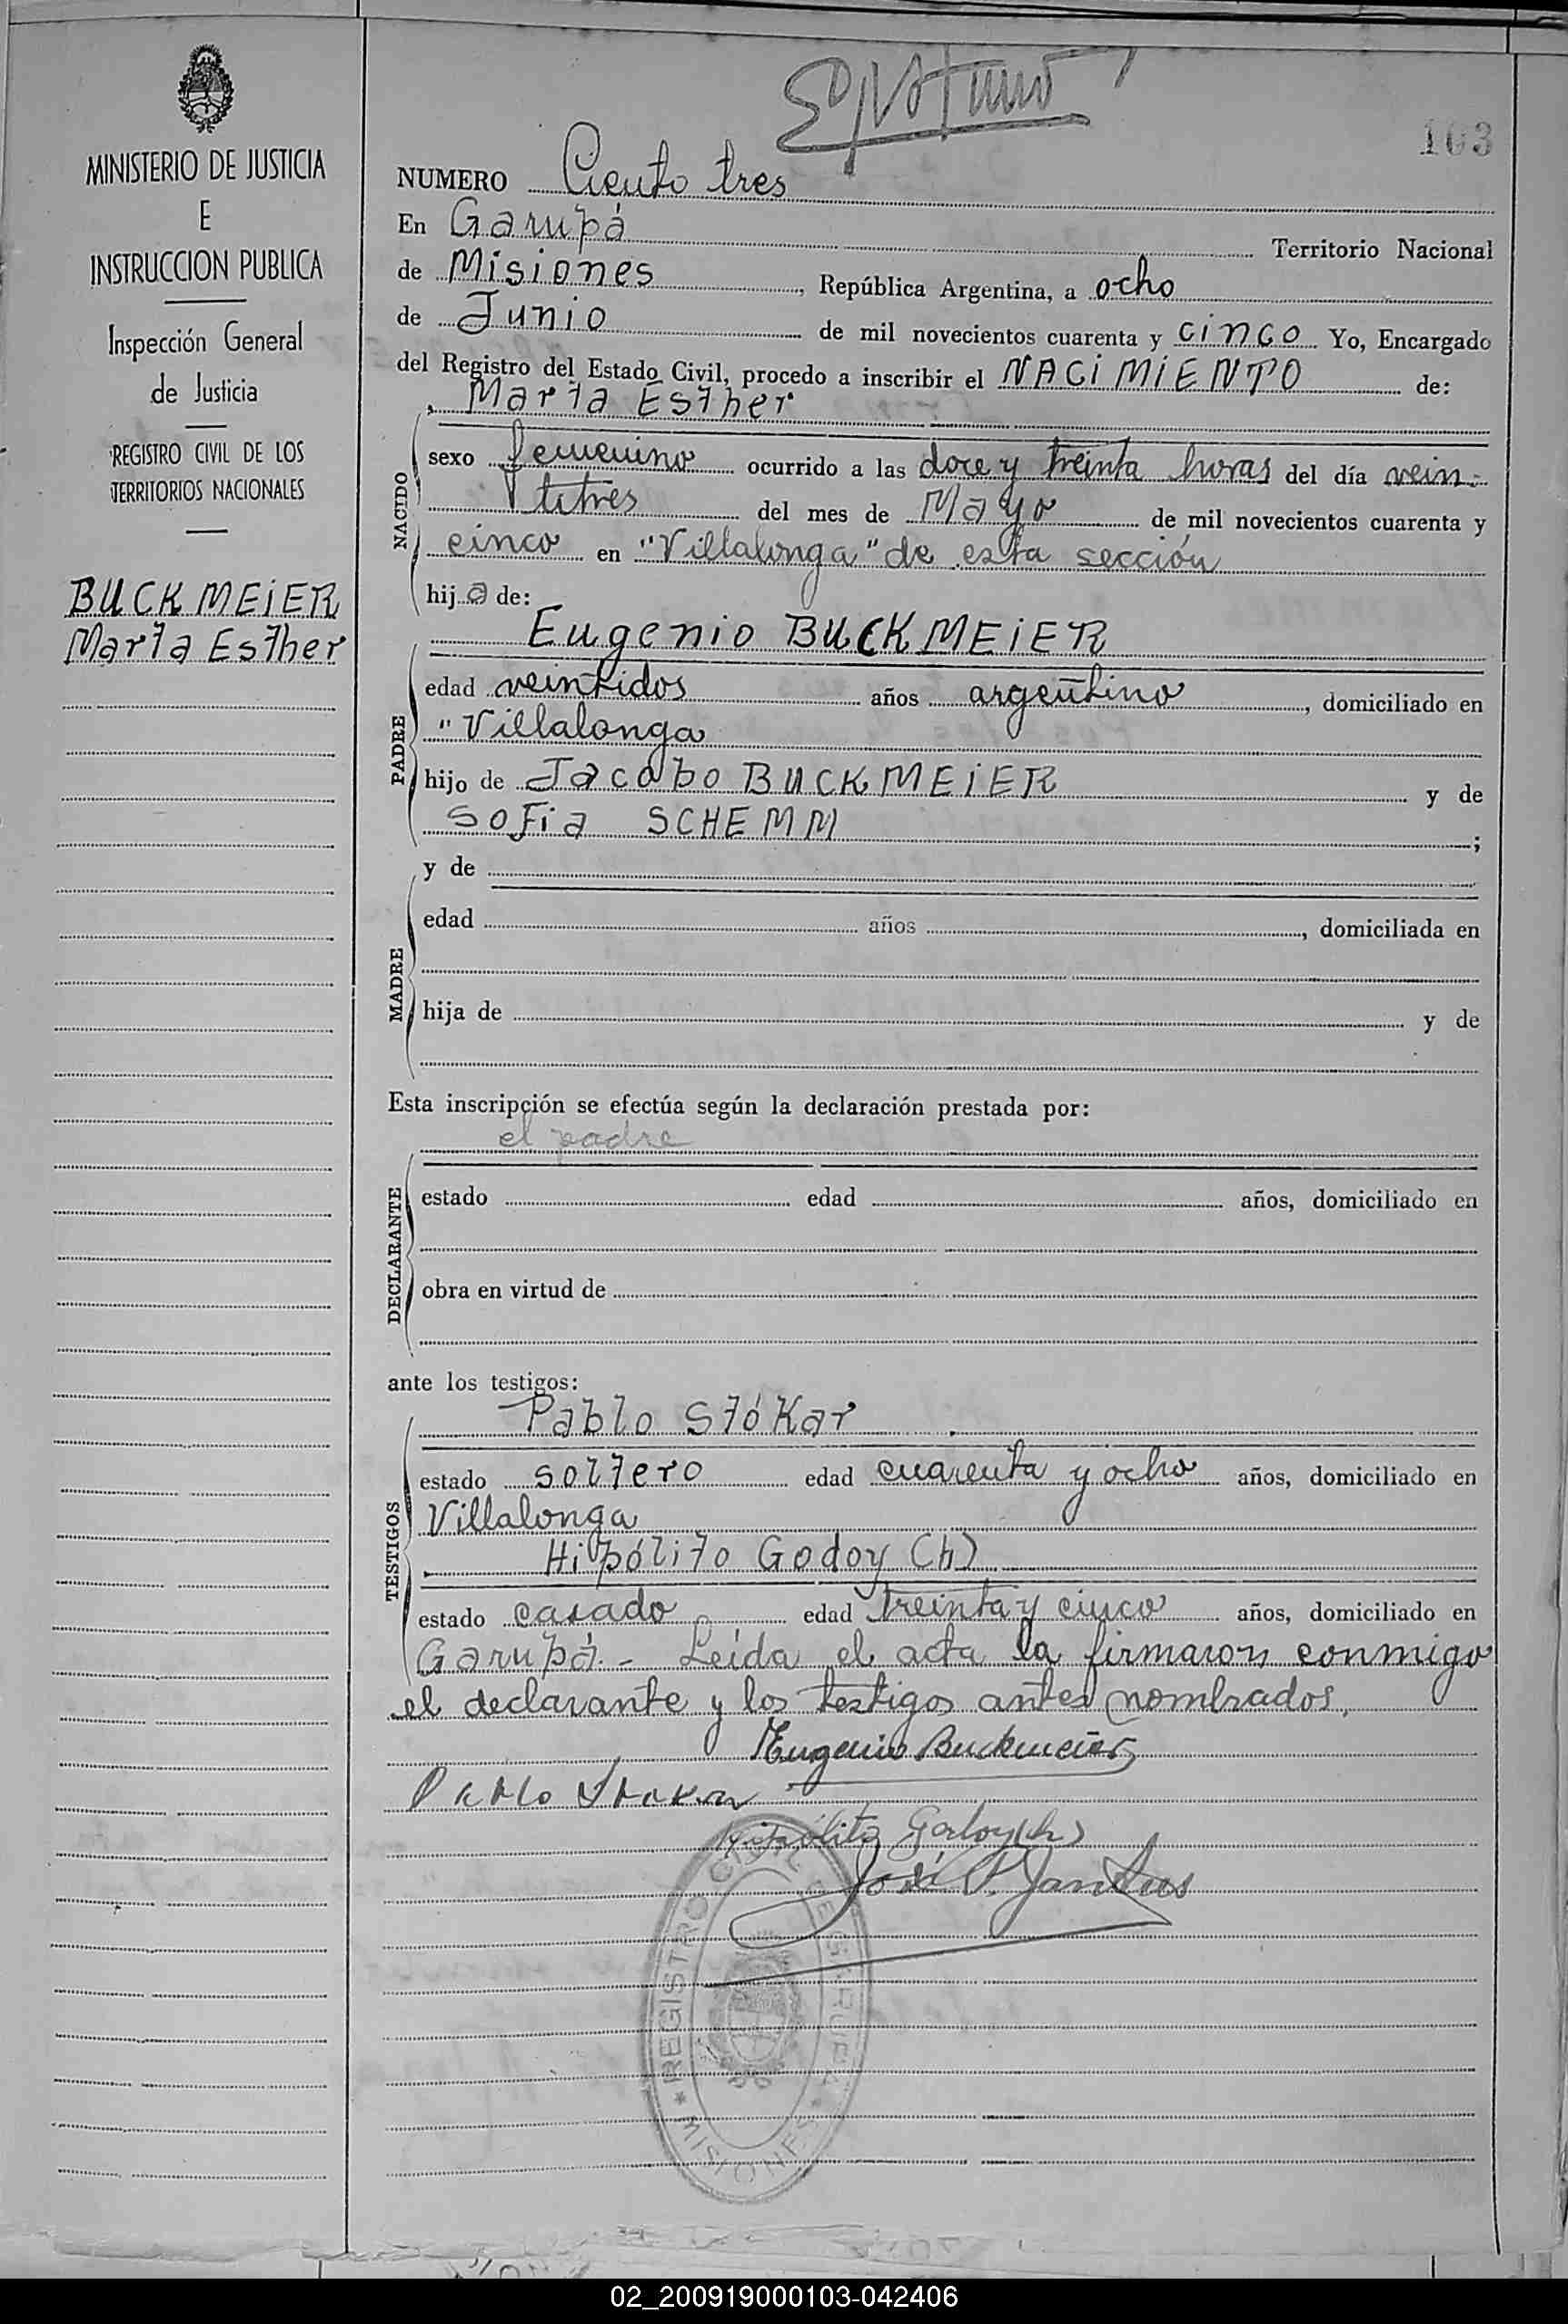 MINISTERIO DE JUSTICIA
E
INSTRUCCION PUBLICA
Inspección General
de Justicia
REGISTRO CIVIL DE LOS
TERRITORIOS NACIONALES
BUCKMEiER
Marta Esther
103
NUMERO Ciento tres
En Garupá Territorio Nacional
de Misiones, República Argentina, a ocho
de Junio de mil novecientos cuarenta y cinco Yo, Encargado
del Registro del Estado Civil, procedo a inscribir el NACiMiENTO de:
Marta Esther
NACIDO
sexo femenino ocurrido a las doce y treinta horas del día vein-
titres del mes de Mayo de mil novecientos cuarenta y
cinco en "Villalonga" de esta sección
hija de:
Eugenio BUCKMEiER
PADRE
edad veintidos años argentino, domiciliado en
"Villalonga
hijo de Jacobo BUCKMEiER y de
SoFia SCHEMM;
MADRE
y de
edad años, domiciliada en
hija de y de
Esta inscripción se efectúa según la declaración prestada por:
el padre
DECLARANTE
estado edad años, domiciliado en
obra en virtud de
ante los testigos:
Pablo Stókar
TESTIGOS
estado soltero edad cuarenta y ocho años, domiciliado en
Villalonga
Hipólito Godoy (h)
estado casado edad treinta y cinco años, domiciliado en
Garupá.- Leída el acta la firmaron conmigo
el declarante y los testigos antes nombrados.
Eugenio Buckmeier
Pablo Stokar
Hipólito Godoy (h)
José
REGISTRO CIVIL DE GARUPA
* MISIONES *
02_200919000103-042406